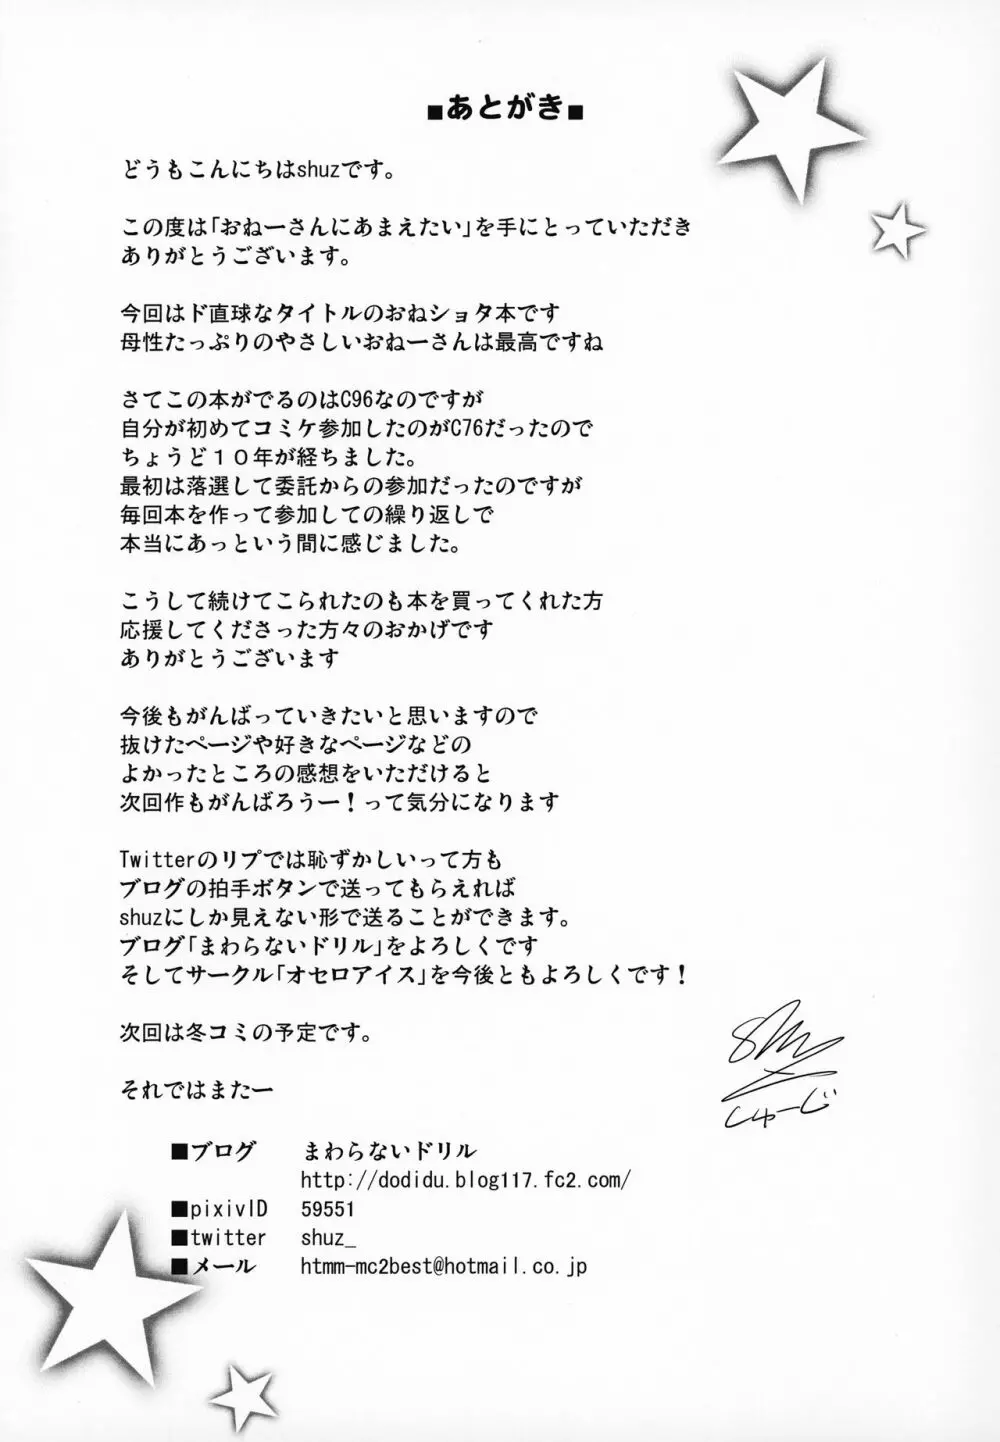 ■あとがき■
どうもこんにちはshuzです。
この度は「おねーさんにあまえたい」を手にとっていただき
ありがとうございます。
今回はド直球なタイトルのおねショタ本です
母性たっぷりのやさしいおねーさんは最高ですね
さてこの本がでるのはC96なのですが
自分が初めてコミケ参加したのがC76だったので
ちょうど１０年が経ちました。
最初は落選して委託からの参加だったのですが
毎回本を作って参加しての繰り返しで
本当にあっという間に感じました。
こうして続けてこられたのも本を買ってくれた方
応援してくださった方々のおかげです
ありがとうございます
今後もがんばっていきたいと思いますので
抜けたページや好きなページなどの
よかったところの感想をいただけると
次回作もがんばろうー！って気分になります
Twitterのリプでは恥ずかしいって方も
ブログの拍手ボタンで送ってもらえれば
shuzにしか見えない形で送ることができます。
ブログ「まわらないドリル」をよろしくです
そしてサークル「オセロアイス」を今後ともよろしくです！
次回は冬コミの予定です。
それではまたー
shuz
しゅーじ
■ブログ　まわらないドリル
http://dodidu.blog117.fc2.com/
■pixivID　59551
■twitter　shuz_
■メール　htmm-mc2best@hotmail.co.jp